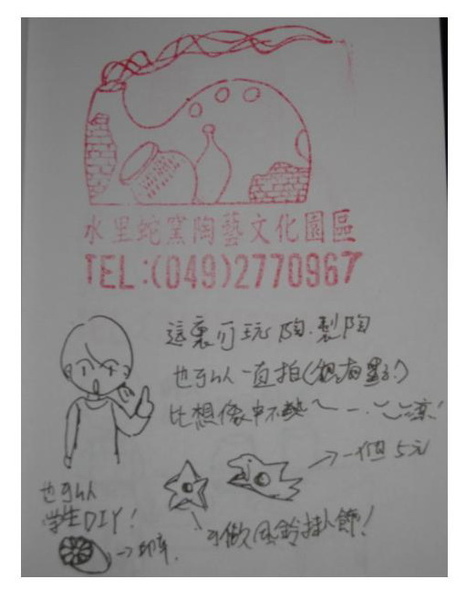 水里蛇窯陶藝文化園區
TEL:(049)2770967
這裏可玩陶.製陶
也可以一直拍(很有
比想像中不熱～
一個5元
也可以
學生DIY!
可做風鈴掛飾!